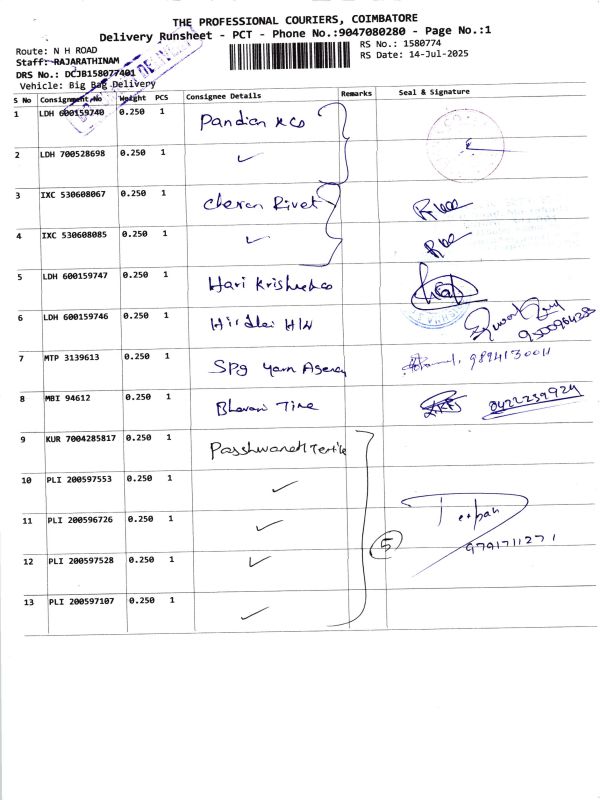 THE PROFESSIONAL COURIERS, COIMBATORE
Delivery Runsheet - PCT - Phone No.:9047080280 - Page No.:1
Route: N H ROAD
RS No.: 1580774
Staff: RAJARATHINAM
RS Date: 14-Jul-2025
DRS No.: DCJB158077401
Vehicle: Big Bag Delivery
S No Consignment No Weight PCS Consignee Details Remarks Seal & Signature
1 LDH 600159740 0.250 1 Pandian & co
2 LDH 700528698 0.250 1 ✓
3 IXC 530608067 0.250 1 Cheran Rivet
4 IXC 530608085 0.250 1 ✓
5 LDH 600159747 0.250 1 Hari Krishna &co
6 LDH 600159746 0.250 1 H/W
9500964288
7 MTP 3139613 0.250 1 SPg yarn Agency 9894130011
8 MBI 94612 0.250 1 Bhavani 0422239924
9 KUR 7004285817 0.250 1
10 PLI 200597553 0.250 1 ✓
11 PLI 200596726 0.250 1 ✓
5
9791711271
12 PLI 200597528 0.250 1 ✓
13 PLI 200597107 0.250 1 ✓